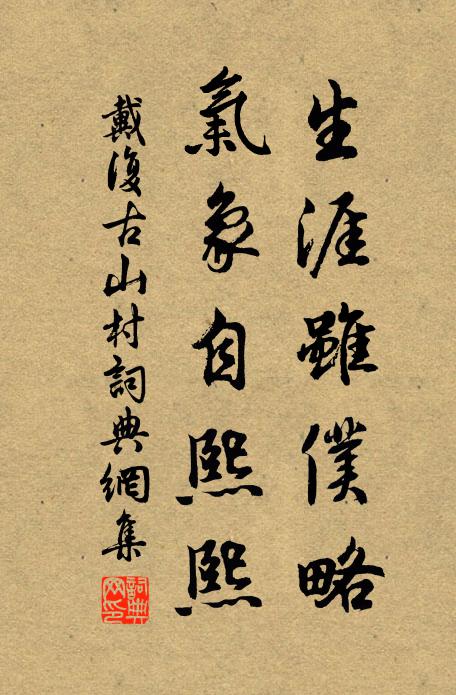 生涯雖僕略
氣象自熙熙
戴復古山村詞典網集
詞典网印